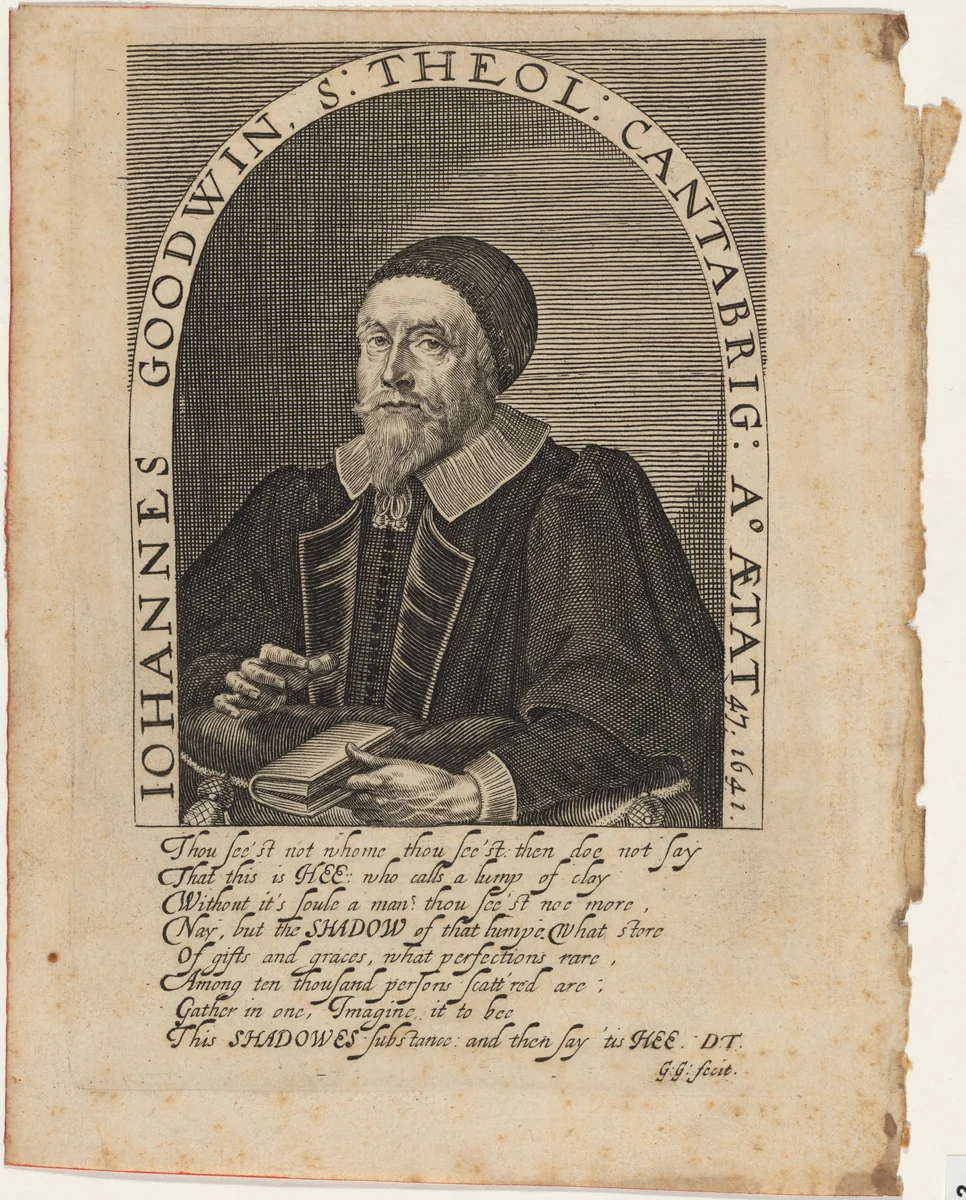 IOHANNES GOODWIN, S: THEOL: CANTABRIG: Aº ÆTAT 47. 1641.
Thou see'st not whome thou see'st: then doe not say
That this is HEE: who calls a lump of clay
Without it's soule a man? thou see'st noe more,
Nay, but the SHADOW of that lumpe. What store
Of gifts and graces, what perfections rare,
Among ten thousand persons scatt'red are;
Gather in one, Imagine it to bee
This SHADOWES substance: and then say 'tis HEE. DT.
G: G: fecit.